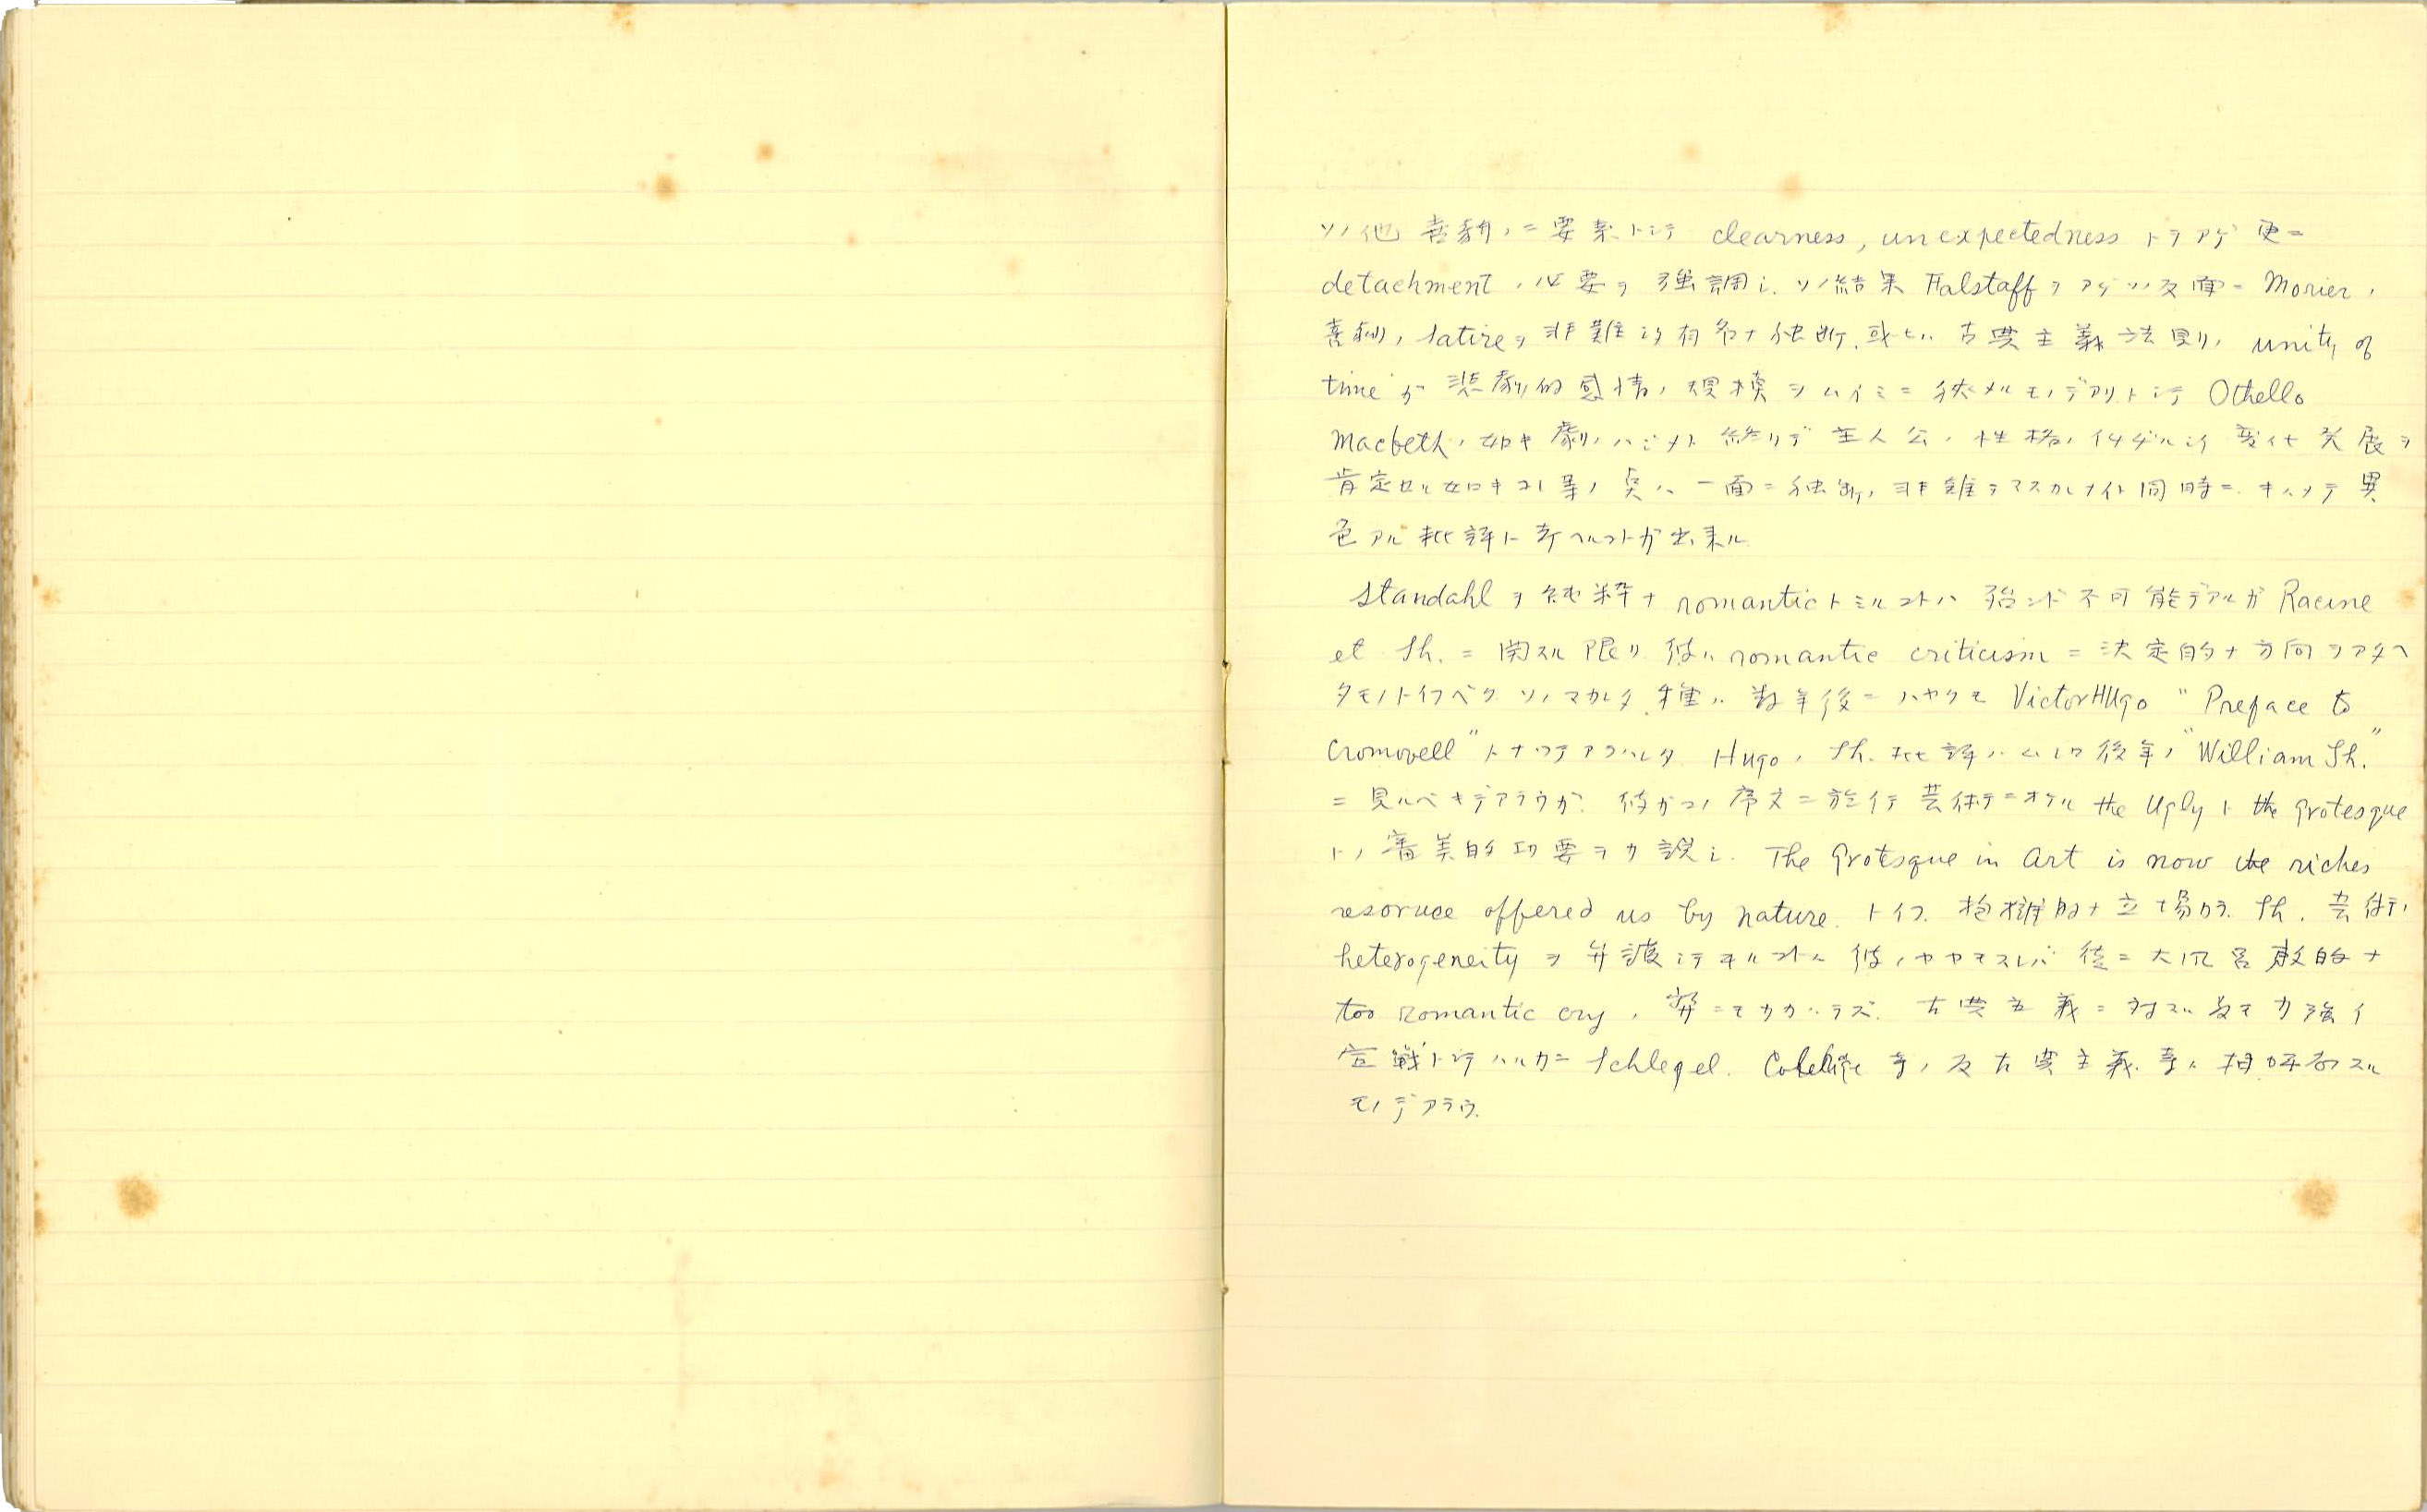 ソノ他 喜劇ノ二要素トシテ clearness, unexpectedness トヲアゲ 更ニ
detachment ノ必要ヲ 強調シ. ソノ結果 Falstaff ヲアゲソノ反面ニ Morier ノ
喜劇ノ satire ヲ非難シタ有名ナ独断. 或ヒハ 古典主義法則ノ unity of
time ガ 悲劇的感情ノ規模ヲ ニ狭メルモノデアルトシテ Othello
Macbeth ノ如キ劇ノハジメト終リデ 主人公ノ性格ノ 変化発展ヲ
肯定セル如キコレ等ノ点ハ 一面ニ独断ノ非難ヲマヌカレナイト同時ニ. キハメテ異
色アル批評ト考ヘルコトガ出来ル.
Standahl ヲ純粋ナ romantic トミルコトハ 殆ンド不可能デアルガ Racine
et Sh. ニ関スル限リ 彼ハ romantic criticism ニ決定的ナ方向ヲアタヘ
タモノトイフベク ソノマカレタ種ハ 数年後ニハヤクモ Victor HUgo "Preface to
Cromovell" トナツテアラハレタ. Hugo ノ Sh. 批評ハムシロ後年ノ "William Sh."
ニ見ルベキデアラウガ. 彼ガコノ序文ニ於イテ芸術ニオケル the Ugly ト the grotesque
トノ審美的功要ヲ力説シ. The grotesque in Art is now the riches
resoruce offered us by nature. トイフ. 抱擁的ナ立場カラ. Sh. ノ芸術ノ
heterogeneity ヲ弁護シテヰルコトハ 彼ノヤヤモスレバ 徒ニ大風呂敷的ナ
too romantic cry ノ弊ニモカカハラズ. 古典主義ニ対スル最モ力強イ
宣戦トシテハルカニ Schlegel. Coleridge 等ノ反古典主義 ト相呼応スル
モノデアラウ.